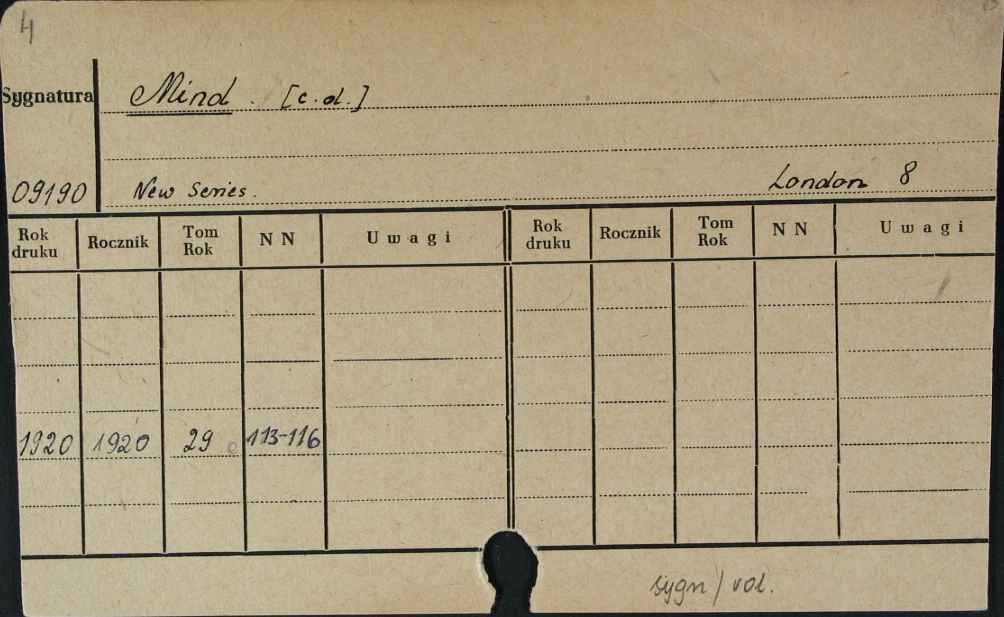 4
Sygnatura
Mind. [c.d.]
09190
New Series.
London 8
Rok druku Rocznik Tom Rok NN Uwagi Rok druku Rocznik Tom Rok NN Uwagi
1920 1920 29 113-116
sygn/vol.